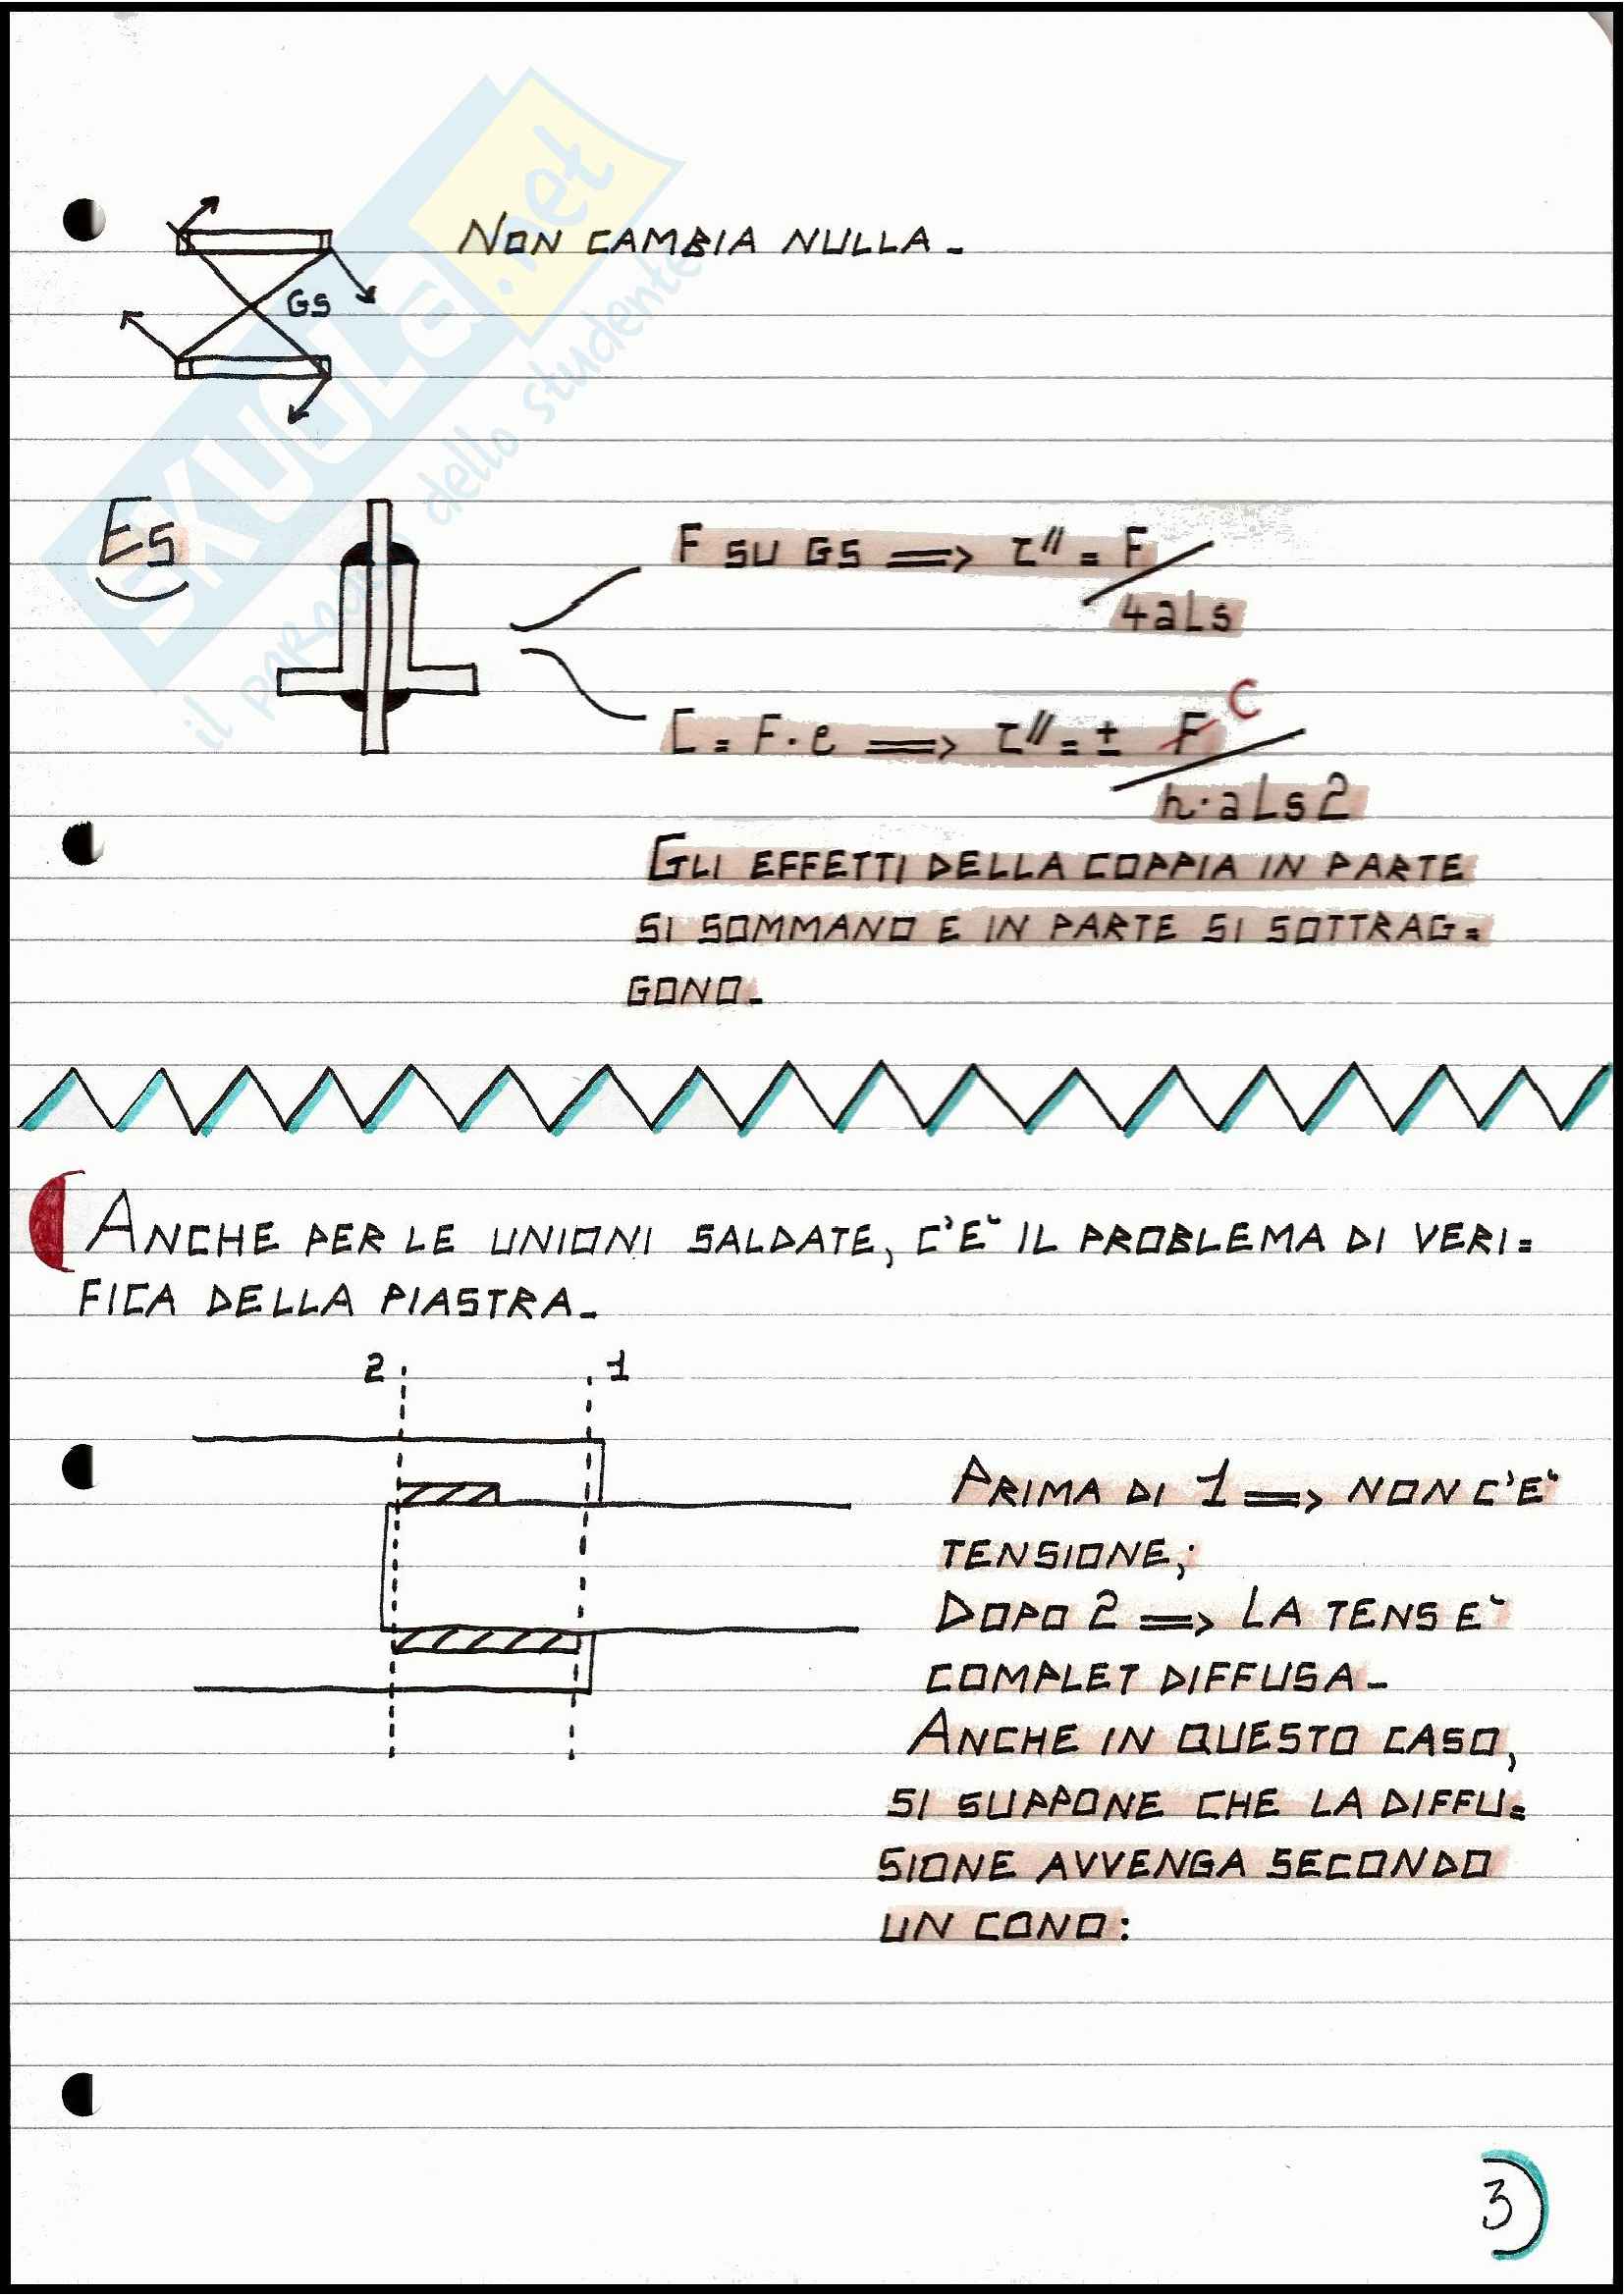 SKUOLA.net
il paradiso dello studente
NON CAMBIA NULLA.
GS
ES
F SU GS => τ" = F / 4aLs
C = F·e => τ" = ± F C / h·aLs2
GLI EFFETTI DELLA COPPIA IN PARTE
SI SOMMANO E IN PARTE SI SOTTRAG=
GONO.
ANCHE PER LE UNIONI SALDATE, C'E` IL PROBLEMA DI VERI=
FICA DELLA PIASTRA.
2 1
PRIMA DI 1 => NON C'E`
TENSIONE;
DOPO 2 => LA TENS E`
COMPLET DIFFUSA.
ANCHE IN QUESTO CASO,
SI SUPPONE CHE LA DIFFU=
SIONE AVVENGA SECONDO
UN CONO:
3